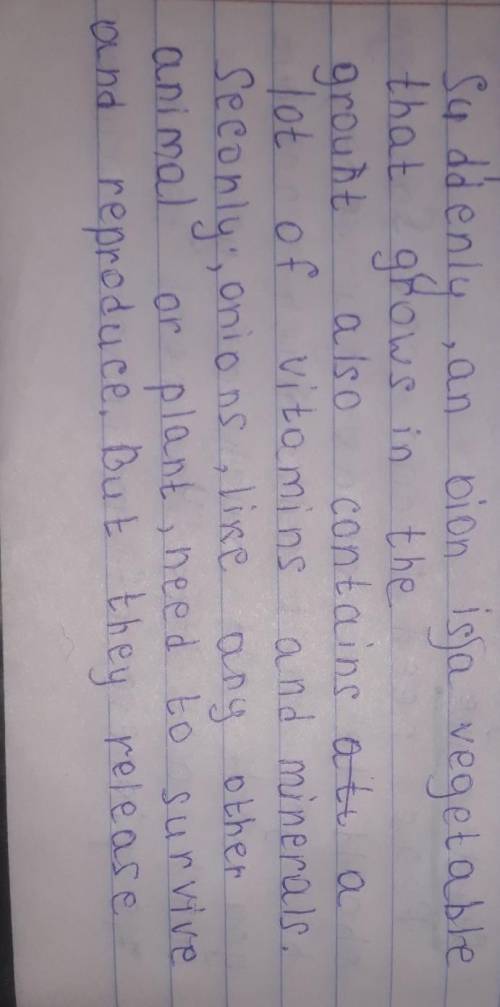 Suddenly, an oion is a vegetable
that grows in the
grount also contains a
lot of vitamins and minerals.
Seconly, onions, like any other
animal or plant, need to survive
and reproduce. But they release